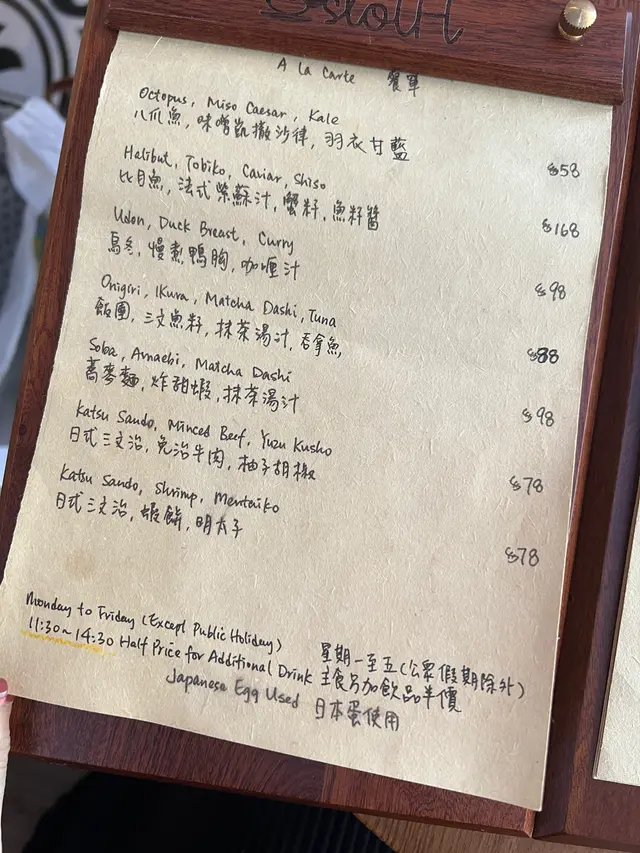 sloth
A La Carte 餐單
Octopus, Miso Caesar, Kale
八爪魚, 味噌凱撒沙律, 羽衣甘藍
$58
Halibut, Tobiko, Caviar, Shiso
比目魚, 法式紫蘇汁, 蟹籽, 魚籽醬
$168
Udon, Duck Breast, Curry
烏冬, 慢煮鴨胸, 咖喱汁
$98
Onigiri, Ikura, Matcha Dashi, Tuna
飯團, 三文魚籽, 抹茶湯汁, 吞拿魚
$88
Soba, Amaebi, Matcha Dashi
蕎麥麵, 炸甜蝦, 抹茶湯汁
$98
Katsu Sando, Minced Beef, Yuzu Kusho
日式三文治, 免治牛肉, 柚子胡椒
$78
Katsu Sando, Shrimp, Mentaiko
日式三文治, 蝦餅, 明太子
$78
Monday to Friday (Except Public Holiday) 星期一至五(公眾假期除外)
11:30~14:30 Half Price for Additional Drink 主食另加飲品半價
Japanese Egg Used 日本蛋使用